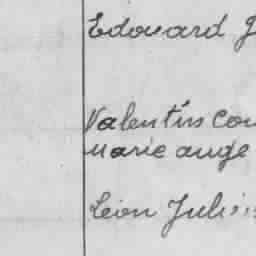 Edouard J
Valentin Cou
Marie ange
Leon Julien